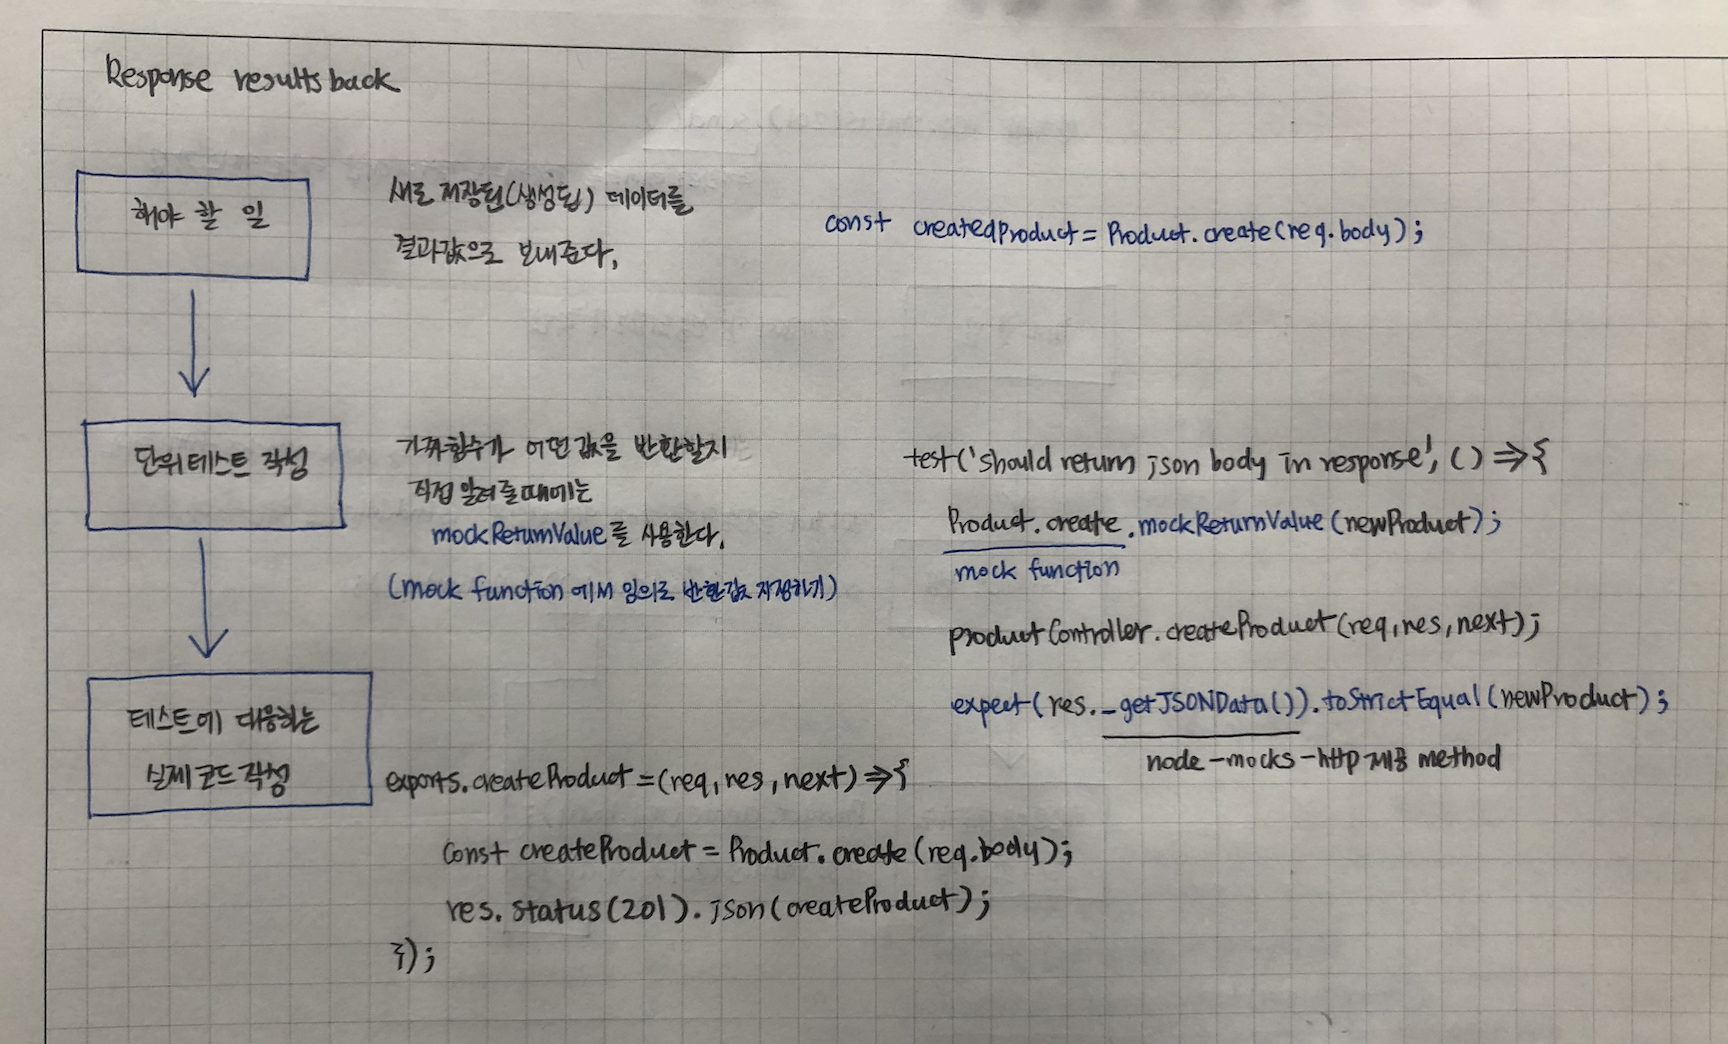 Response results back
해야 할 일
새로 저장된(생성된) 데이터를
결과값으로 보내준다.
const createdProduct = Product.create(req.body);
단위테스트 작성
가짜함수가 어떤값을 반환할지
직접 알려줄때에는
mockReturnValue를 사용한다.
(mock function에서 임의로 반환값 지정하기)
test('should return json body in response', () => {
Product.create.mockReturnValue(newProduct);
mock function
productController.createProduct(req,res,next);
expect(res._getJSONData()).toStrictEqual(newProduct);
node-mocks-http제공 method
테스트에 대응하는
실제코드작성
exports.createProduct = (req,res,next) => {
const createProduct = Product.create(req.body);
res.status(201).json(createProduct);
});